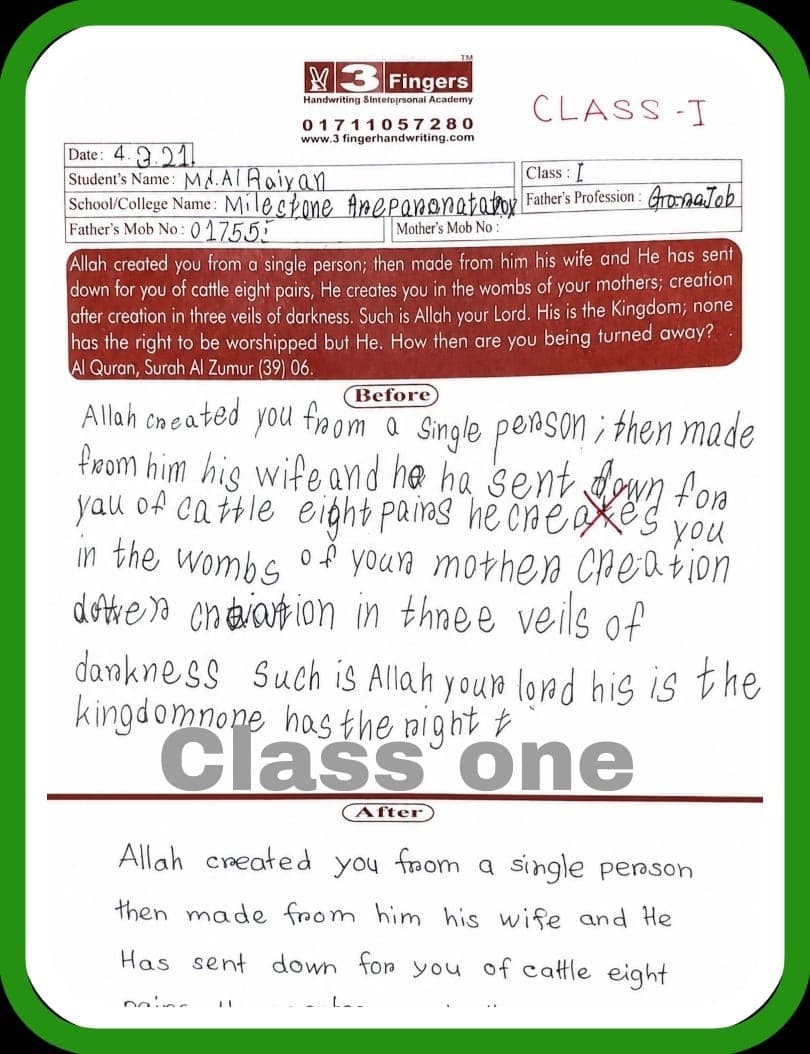 TM
3 Fingers
Handwriting &Interpersonal Academy
01711057280
www.3 fingerhandwriting.com
CLASS - I
Date: 4.3.21
Student's Name: Md.Al Raiyan
Class: I
School/College Name: Milestone
Father's Profession: Job
Father's Mob No: 01755
Mother's Mob No:
Allah created you from a single person; then made from him his wife and He has sent
down for you of cattle eight pairs, He creates you in the wombs of your mothers; creation
after creation in three veils of darkness. Such is Allah your Lord. His is the Kingdom; none
has the right to be worshipped but He. How then are you being turned away?
Al Quran, Surah Al Zumur (39) 06.
Before
Allah created you from a single person; then made
from him his wife and he ha sent down for
yau of cattle eight pairs he creates you
in the wombs of your mother creation
in three veils of
darkness Such is Allah your lord his is the
kingdomnone has the right t
Class one
After
Allah created you from a single person
then made from him his wife and He
Has sent down for you of cattle eight